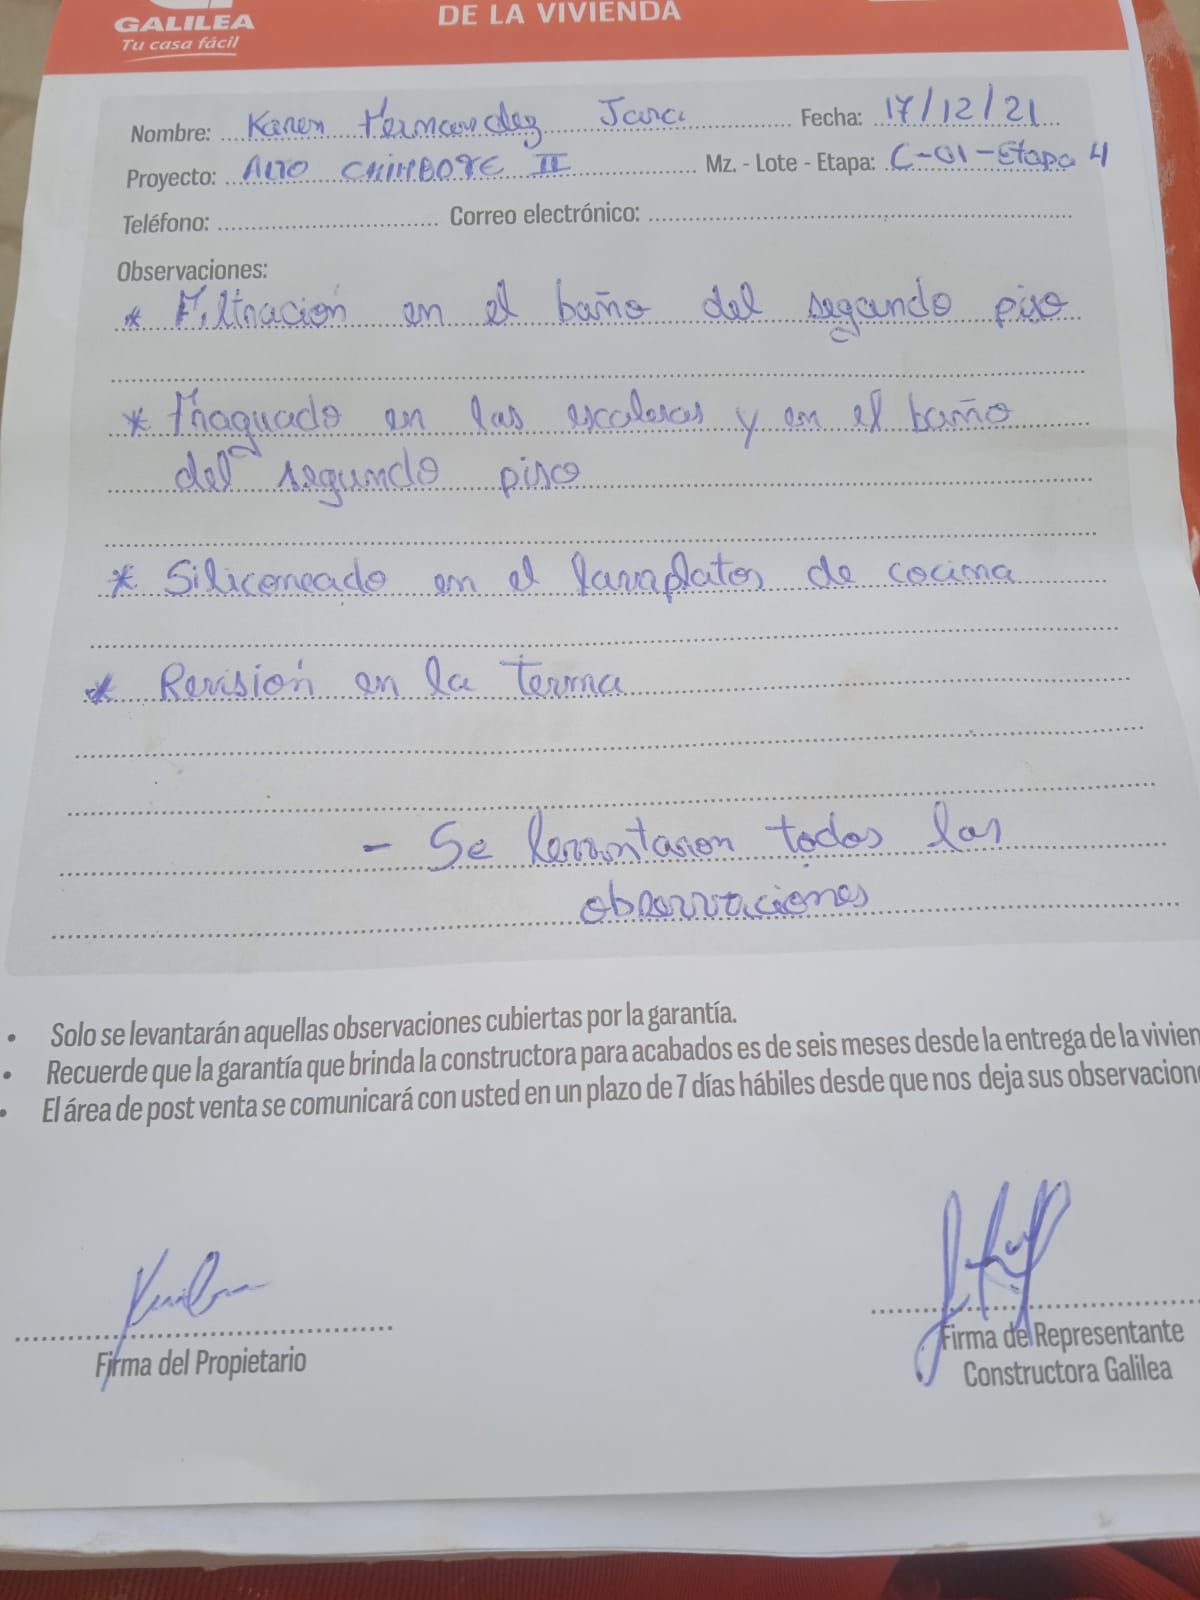 GALILEA
Tu casa fácil
DE LA VIVIENDA
Nombre: Karen Hernandez Jara Fecha: 17/12/21
Proyecto: ALTO CHIMBOTE II Mz. - Lote - Etapa: C-01-Etapa 4
Teléfono: Correo electrónico:
Observaciones:
* Filtración en el baño del segundo piso
* Fraguado en las escaleras y en el baño
del segundo piso
* Siliconeado en el lavaplatos de cocina
* Revisión en la terma
- Se levantaron todas las
observaciones
• Solo se levantarán aquellas observaciones cubiertas por la garantía.
• Recuerde que la garantía que brinda la constructora para acabados es de seis meses desde la entrega de la vivien
• El área de post venta se comunicará con usted en un plazo de 7 días hábiles desde que nos deja sus observacion
Firma del Propietario
Firma de Representante
Constructora Galilea